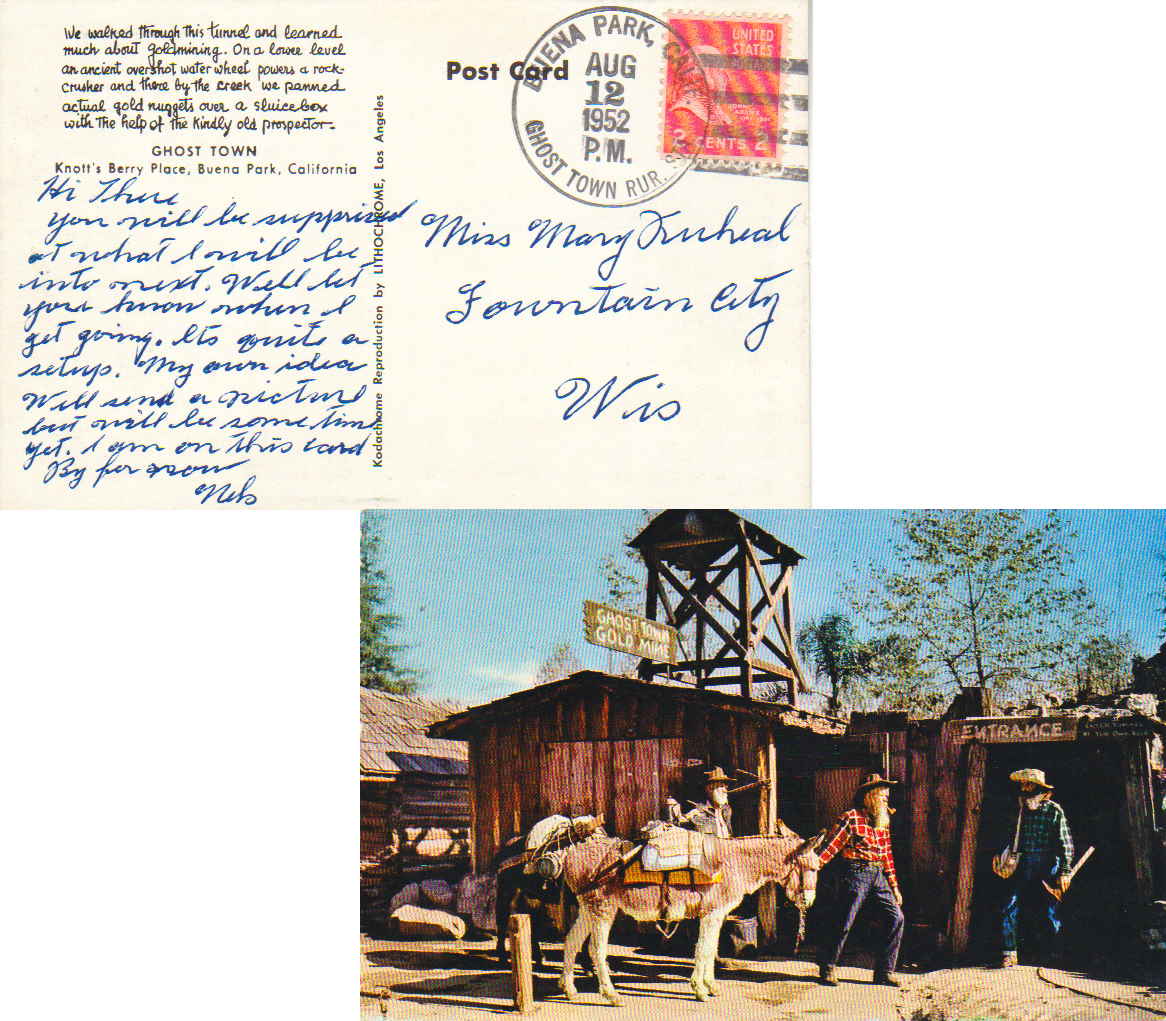 We walked through this tunnel and learned
much about goldmining. On a lower level
an ancient overshot water wheel powers a rock-
crusher and there by the creek we panned
actual gold nuggets over a sluicebox
with the help of the kindly old prospector-
GHOST TOWN
Knott's Berry Place, Buena Park, California
Hi There
You will be supprised
at what I will be
into next. Well let
you know when I
get going. Its quite a
setup. My own idea
Will send a picture
but will be some time
yet. I am on this card
By for now
Nels
Kodachrome Reproduction by LITHOCHROME, Los Angeles
Post Card
BUENA PARK, CALIF.
AUG
12
1952
P.M.
GHOST TOWN RUR. STA.
UNITED
STATES
POSTAGE
JOHN
ADAMS
2 CENTS 2
Miss Mary
Fountain City
Wis
GHOST TOWN
GOLD MINE
ENTRANCE